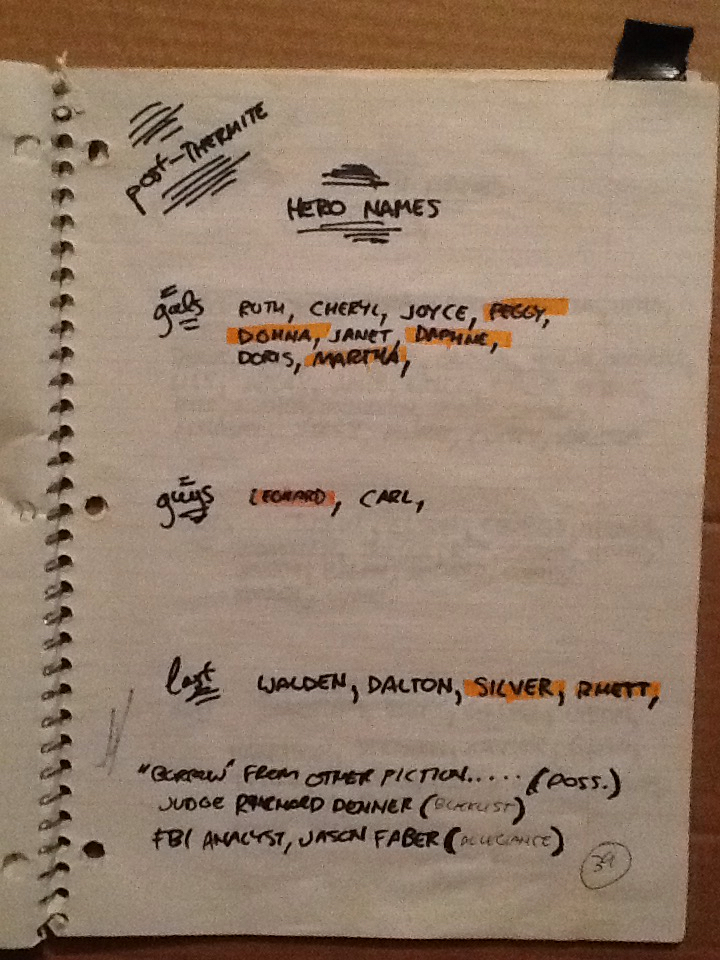 post-THERMITE
HERO NAMES
gals RUTH, CHERYL, JOYCE, PEGGY,
DONNA, JANET, DAPHNE,
DORIS, MARTHA,
guys LEONARD, CARL,
last WALDEN, DALTON, SILVER, RHETT,
"BORROW" FROM OTHER FICTION..... (POSS.)
JUDGE DENNER (BLACKLIST)
FBI ANALYST, JASON FABER (ALLEGIANCE)
39